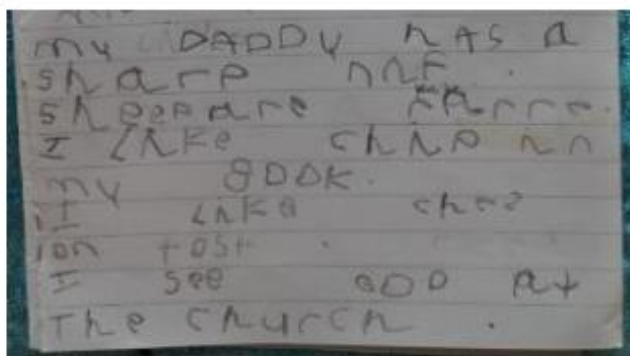 my DADDY hAS a
sharp
sheep are
I like chip in
my BOOK.
I like
on tost .
I see GOD at
The church .